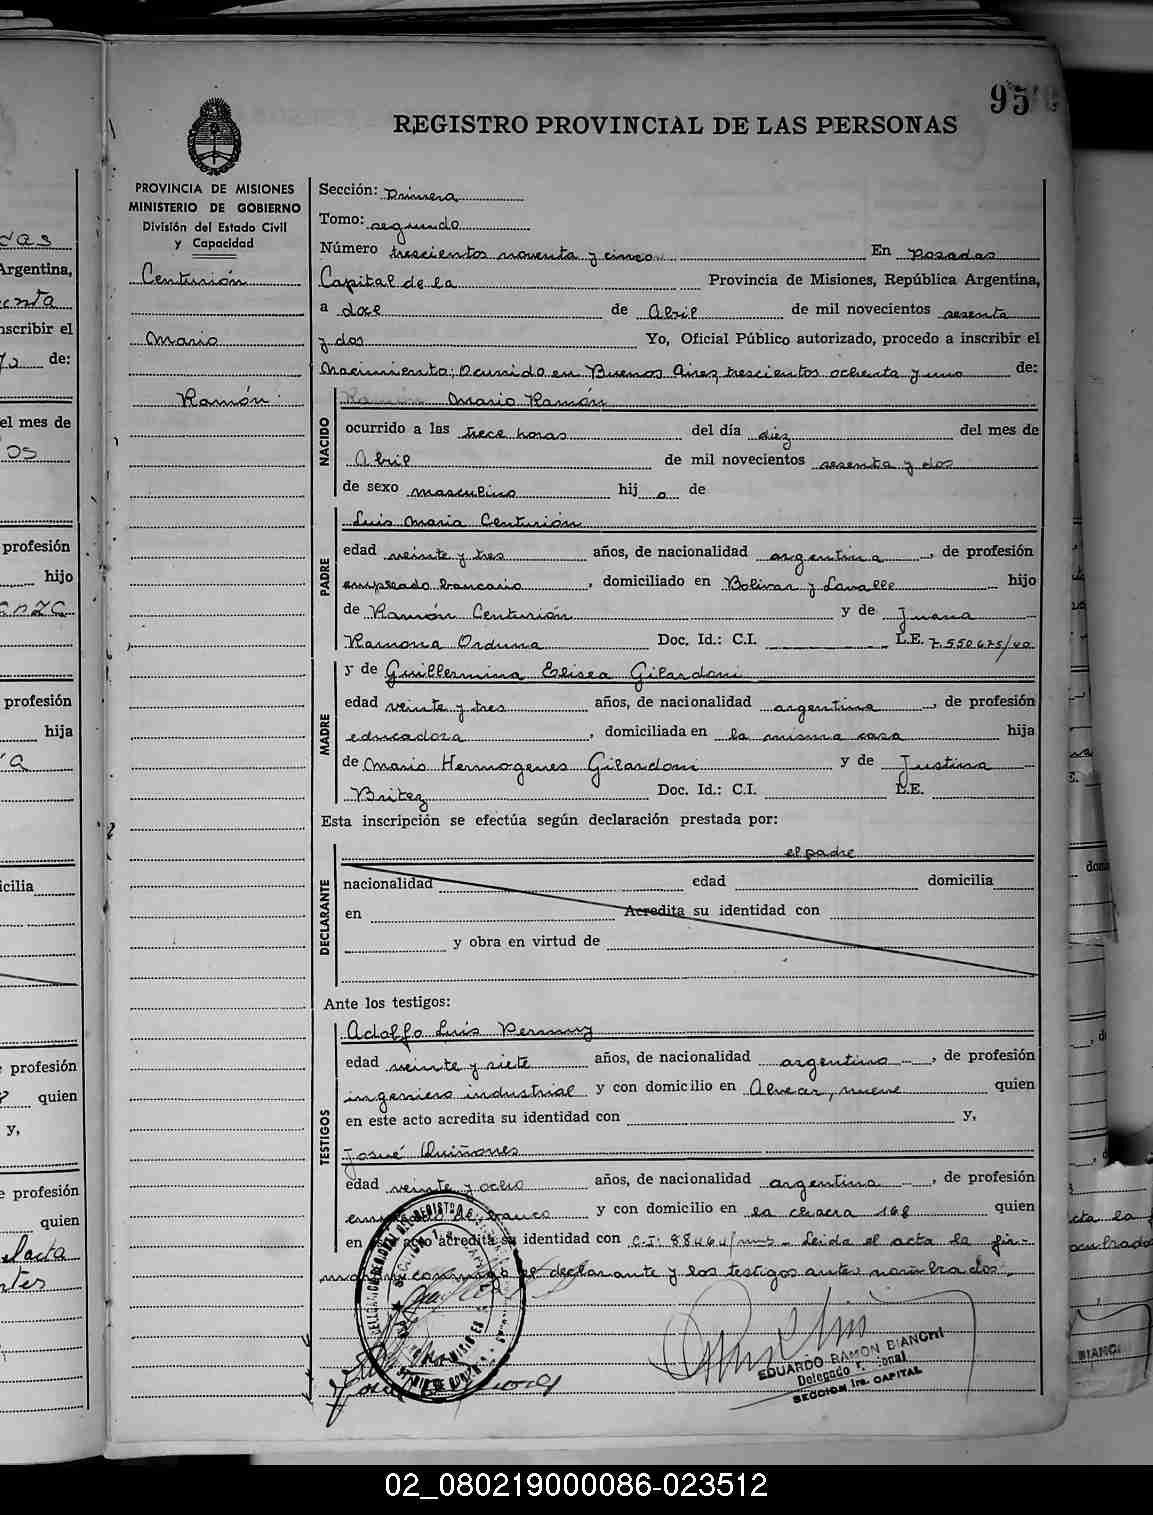 95
REGISTRO PROVINCIAL DE LAS PERSONAS
PROVINCIA DE MISIONES
MINISTERIO DE GOBIERNO
División del Estado Civil
y Capacidad
Centurión
Mario
Ramón
Sección: Primera
Tomo: segundo
Número trescientos noventa y cinco En Posadas
Capital de la Provincia de Misiones, República Argentina,
a doce de Abril de mil novecientos sesenta
y dos Yo, Oficial Público autorizado, procedo a inscribir el
Nacimiento; Ocurrido en Buenos Aires trescientos ochenta y uno de:
NACIDO
Ramón Mario Ramón
ocurrido a las trece horas del día diez del mes de
Abril de mil novecientos sesenta y dos
de sexo masculino hij o de
PADRE
Luis Maria Centurión
edad veinte y tres años, de nacionalidad argentina, de profesión
empleado bancario, domiciliado en Bolivar y Lavalle hijo
de Ramón Centurión y de Juana
Ramona Orduna Doc. Id.: C.I. L.E. 7.550675/40
MADRE
y de Guillermina Elisea Gilardoni
edad veinte y tres años, de nacionalidad argentina, de profesión
educadora, domiciliada en la misma casa hija
de Mario Hermogenes Gilardoni y de Justina
Britez Doc. Id.: C.I. L.E.
Esta inscripción se efectúa según declaración prestada por:
DECLARANTE
el padre
nacionalidad edad domicilia
en Acredita su identidad con
y obra en virtud de
Ante los testigos:
TESTIGOS
Adolfo Luis Permuy
edad veinte y siete años, de nacionalidad argentino, de profesión
ingeniero industrial y con domicilio en Alvear, nueve quien
en este acto acredita su identidad con y,
Josué Quiñones
edad veinte y ocho años, de nacionalidad argentina, de profesión
empleado de Banco y con domicilio en la chacra 168 quien
en este acto acredita su identidad con C.I: 88464/mns - Leida el acta la fir-
man conmigo el declarante y los testigos antes nombrados.
EDUARDO RAMON BIANCHI
Delegado
SECCION 1ra. CAPITAL
02_080219000086-023512